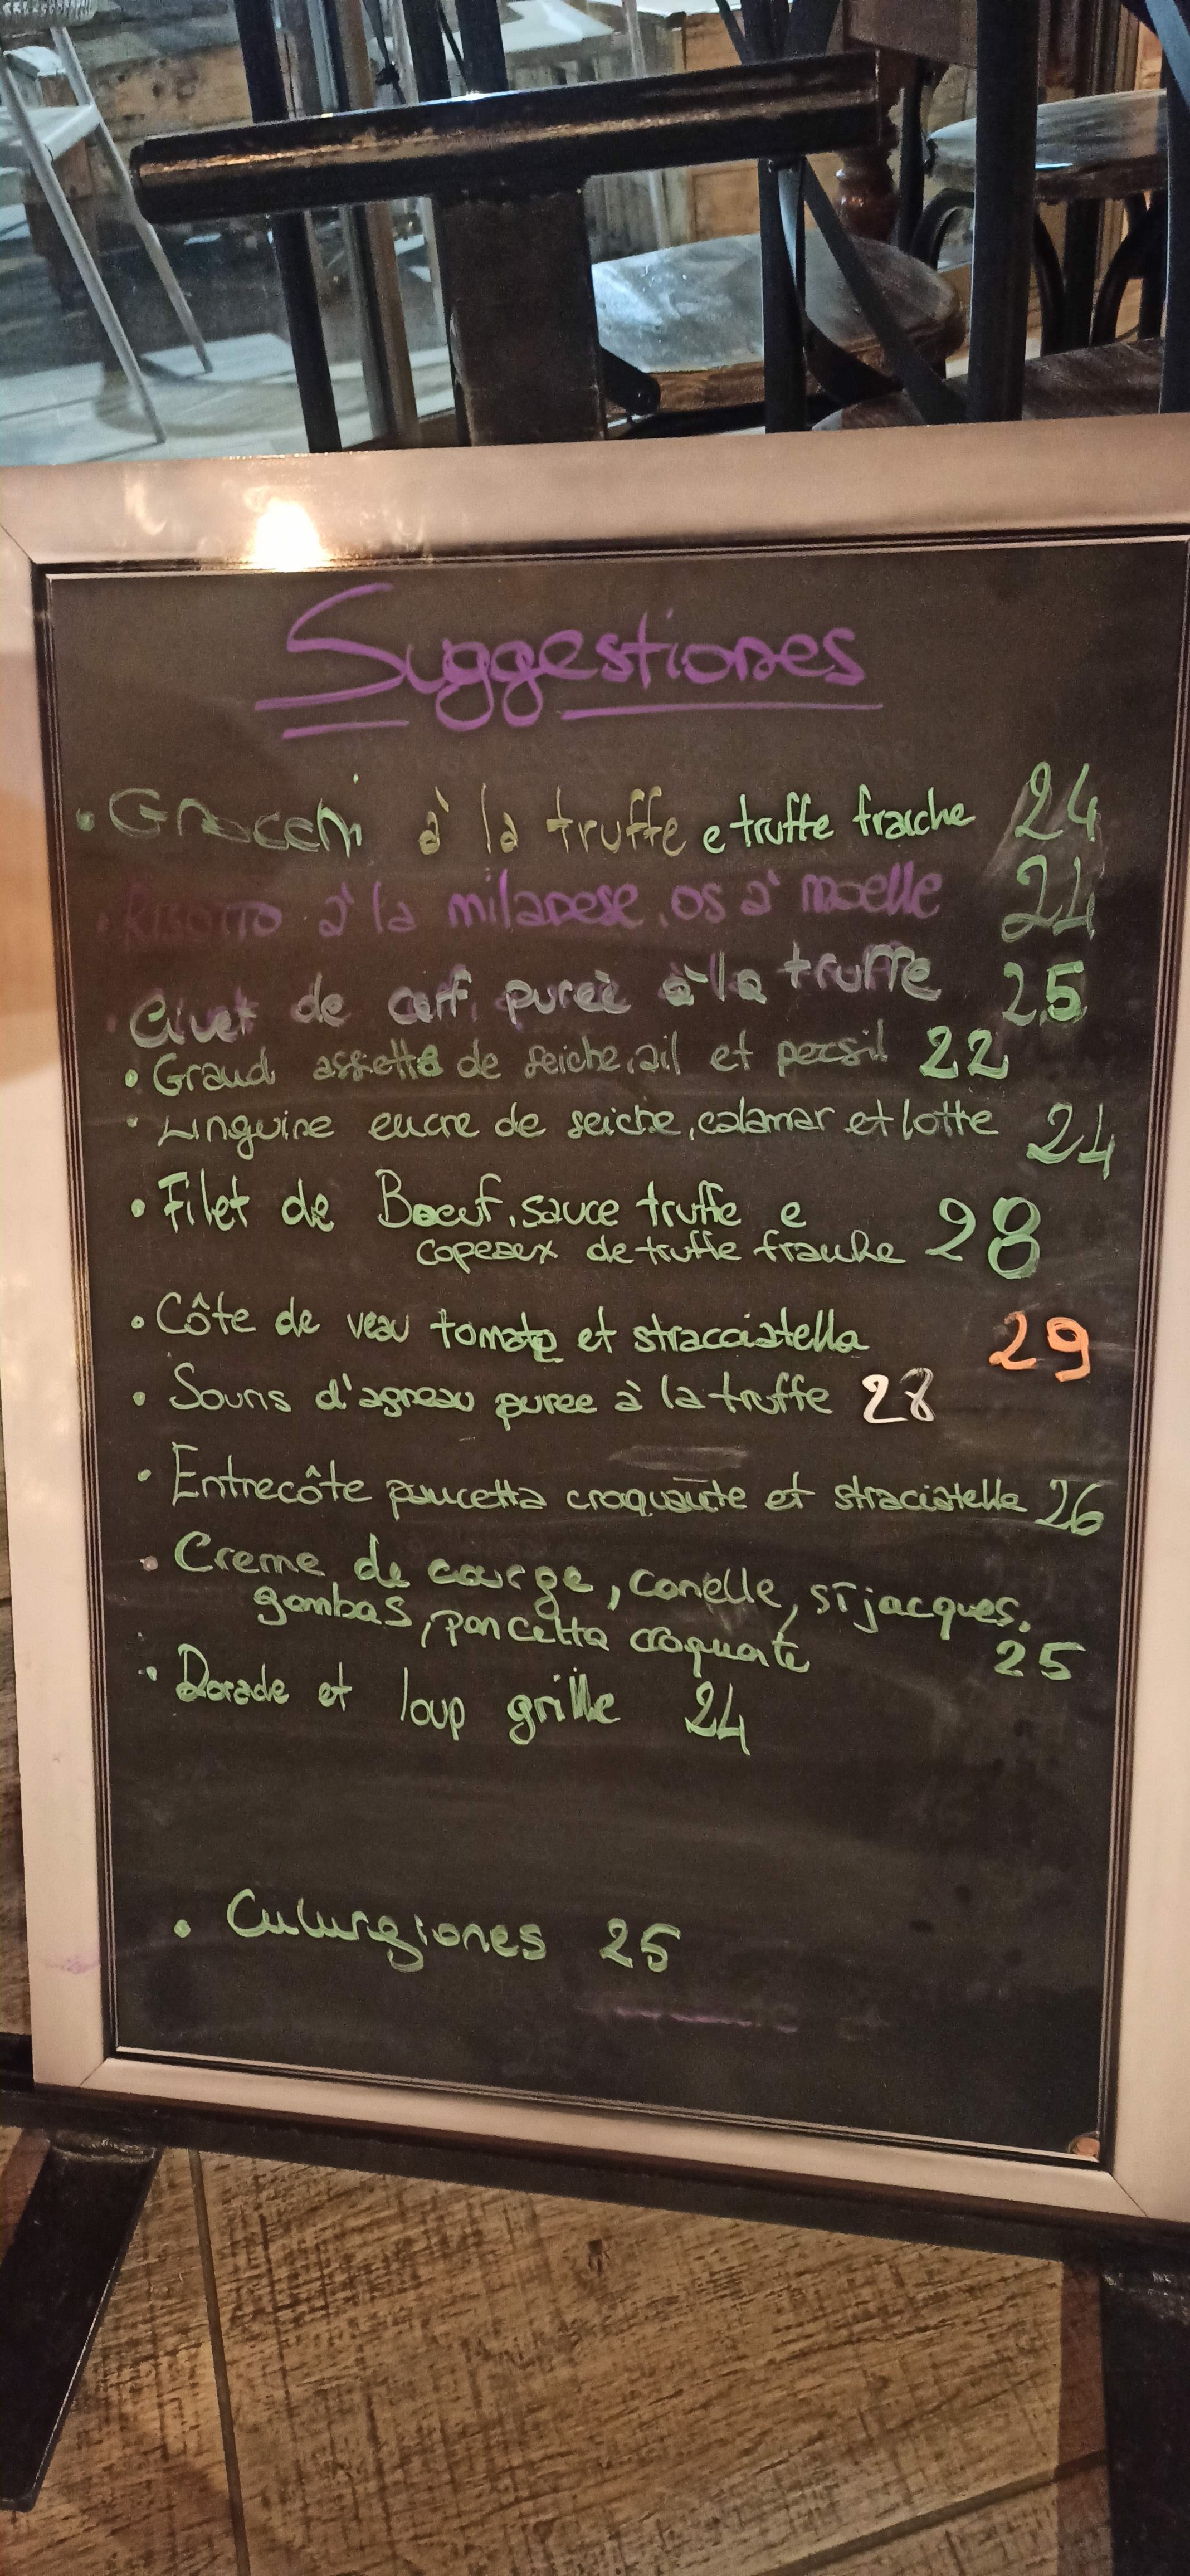 Suggestiones
• Gnocchi à la truffe e truffe fraiche 24
• Risotto à la milanese, os à moelle 24
• Civet de cerf, pureè à la truffe 25
• Grand assiette de seiche, ail et persil 22
• Linguine encre de seiche, calamar et lotte 24
• Filet de Boeuf, sauce truffe e
copeaux de truffe fraiche 28
• Côte de veau tomate et stracciatella 29
• Souris d'agneau puree à la truffe 28
• Entrecôte pancetta croquante et straciatella 26
• Creme de courge, conelle, st jacques,
gambas, pancetta croquante 25
• Dorade et loup grille 24
• Culurgiones 25